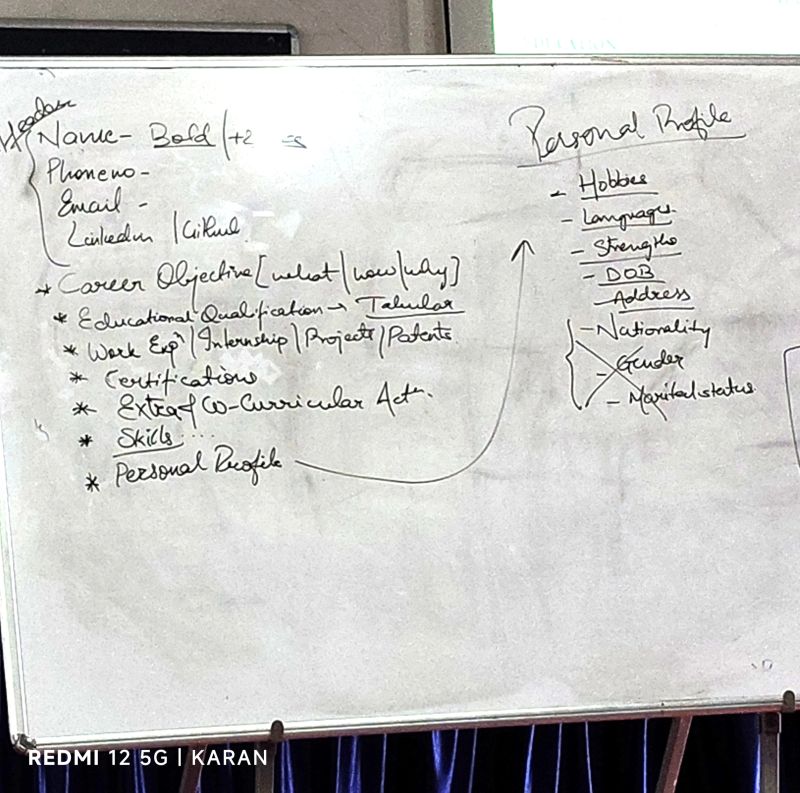 Header
Name - Bold / +2
Phoneno -
Email -
Linkedin / Github
* Career Objective [what / how / why]
* Educational Qualification → Tabular
* Work Expⁿ / Internship / Projects / Patents
* Certifications
* Extra & Co-Curricular Actⁿ.
* Skills ...
* Personal Profile
Personal Profile
- Hobbies
- Languages
- Strengths
- DOB
- Address
- Nationality
- Gender
- Marital status
REDMI 12 5G | KARAN